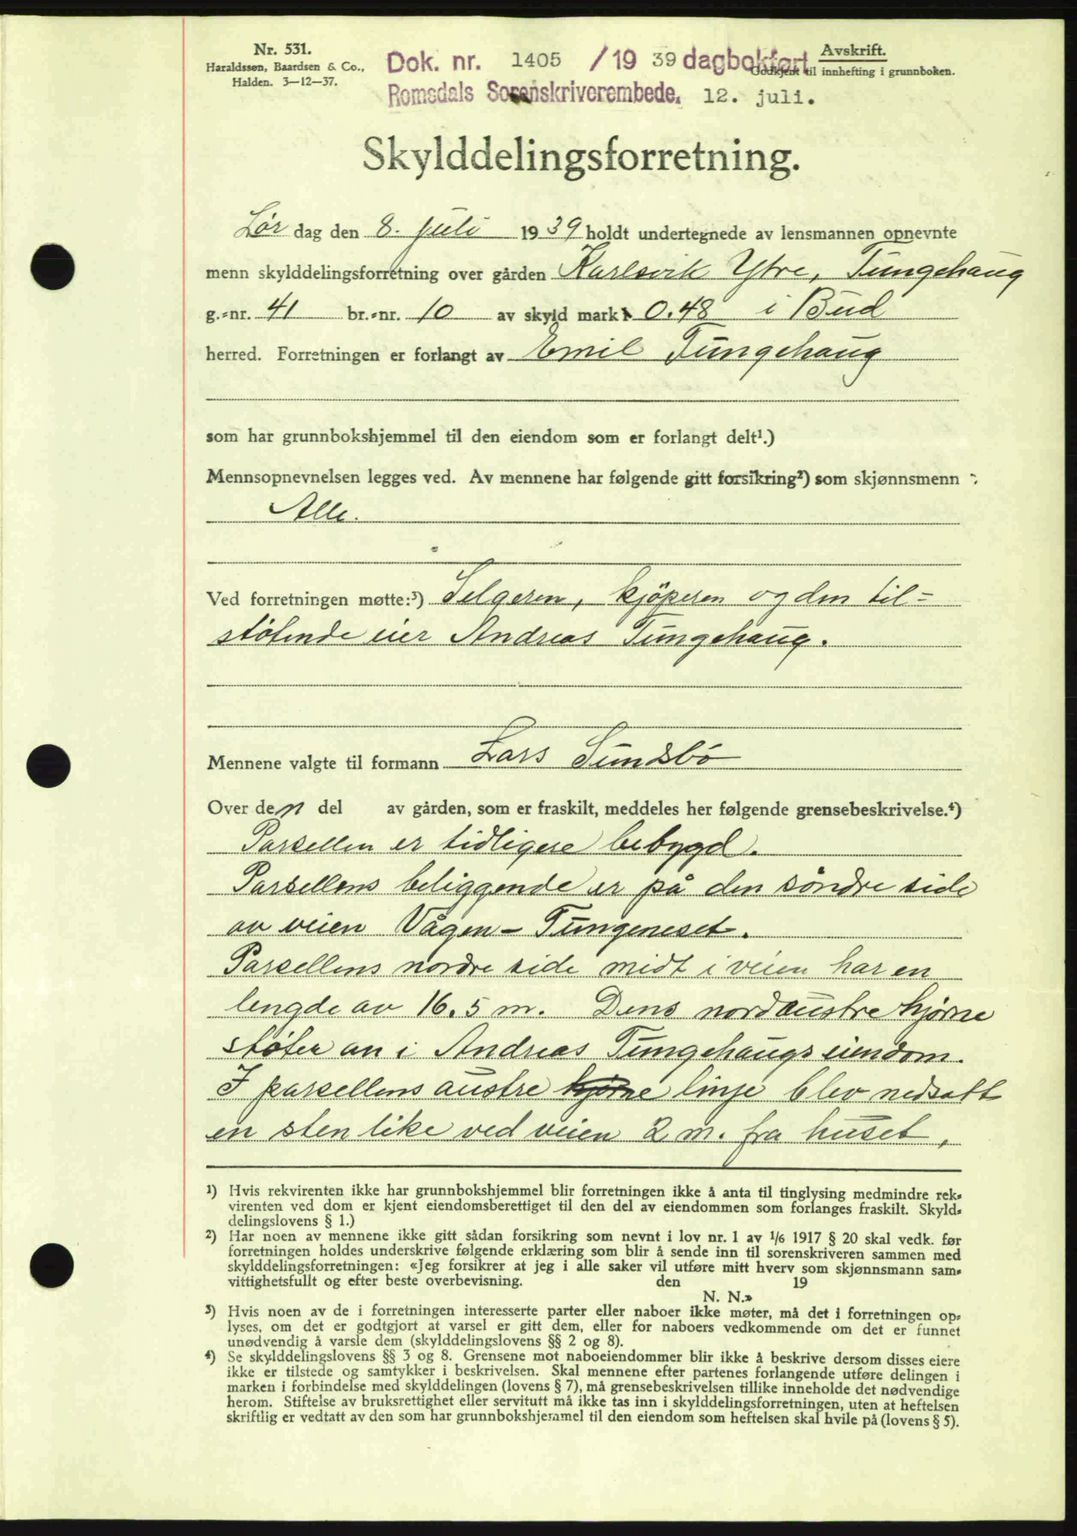 Nr. 531.
Haraldssøn, Baardsen & Co.,
Halden. 3—12—37.
Dok. nr. 1405 / 19 39 dagbokført
Romsdals Sorenskriverembede. 12. juli.
Avskrift.
Godkjent til innhefting i grunnboken.
Skylddelingsforretning.
Lør dag den 8. juli 1939 holdt undertegnede av lensmannen opnevnte
menn skylddelingsforretning over gården Karlsvik Ytre, Tungehaug
g.-nr. 41 br.-nr. 10 av skyld mark 0.48 i Bud
herred. Forretningen er forlangt av Emil Tungehaug
som har grunnbokshjemmel til den eiendom som er forlangt delt¹.)
Mennsopnevnelsen legges ved. Av mennene har følgende gitt forsikring²) som skjønnsmenn :
Alle.
Ved forretningen møtte:³) Selgeren, kjöperen og den til=
støtende eier Andreas Tungehaug.
Mennene valgte til formann Lars Sundsbö
Over den del av gården, som er fraskilt, meddeles her følgende grensebeskrivelse.⁴)
Parsellen er tidligere bebygd.
Parsellens beliggende er på den söndre side
av veien Vågen - Tungeneset.
Parsellens nordre side midt i veien har en
lengde av 16.5 m. Dens nordaustre hjørne
støter an i Andreas Tungehaugs eiendom.
I parsellens austre hjørne linje blev nedsatt
en sten like ved veien 2 m. fra huset,
¹) Hvis rekvirenten ikke har grunnbokshjemmel blir forretningen ikke å anta til tinglysing medmindre rek-
virenten ved dom er kjent eiendomsberettiget til den del av eiendommen som forlanges fraskilt. Skyld-
delingslovens § 1.)
²) Har noen av mennene ikke gitt sådan forsikring som nevnt i lov nr. 1 av 1/6 1917 § 20 skal vedk. før
forretningen holdes underskrive følgende erklæring som blir å sende inn til sorenskriveren sammen med
skylddelingsforretningen: «Jeg forsikrer at jeg i alle saker vil utføre mitt hverv som skjønnsmann sam-
vittighetsfullt og efter beste overbevisning. den 19
N. N.»
³) Hvis noen av de i forretningen interesserte parter eller naboer ikke møter, må det i forretningen op-
lyses, om det er godtgjort at varsel er gitt dem, eller for naboers vedkommende om det er funnet
unødvendig å varsle dem (skylddelingslovens §§ 2 og 8).
⁴) Se skylddelingslovens §§ 3 og 8. Grensene mot naboeiendommer blir ikke å beskrive dersom disses eiere
ikke er tilstede og samtykker i beskrivelsen. Skal mennene efter partenes forlangende utføre delingen i
marken i forbindelse med skylddelingen (lovens § 7), må grensebeskrivelsen tillike inneholde det nødvendige
herom. Stiftelse av bruksrettighet eller servitutt må ikke tas inn i skylddelingsforretningen, uten at heftelsen
skriftlig er vedtatt av den som har grunnbokshjemmel til den eiendom som heftelsen skal hvile på (lovens § 5).